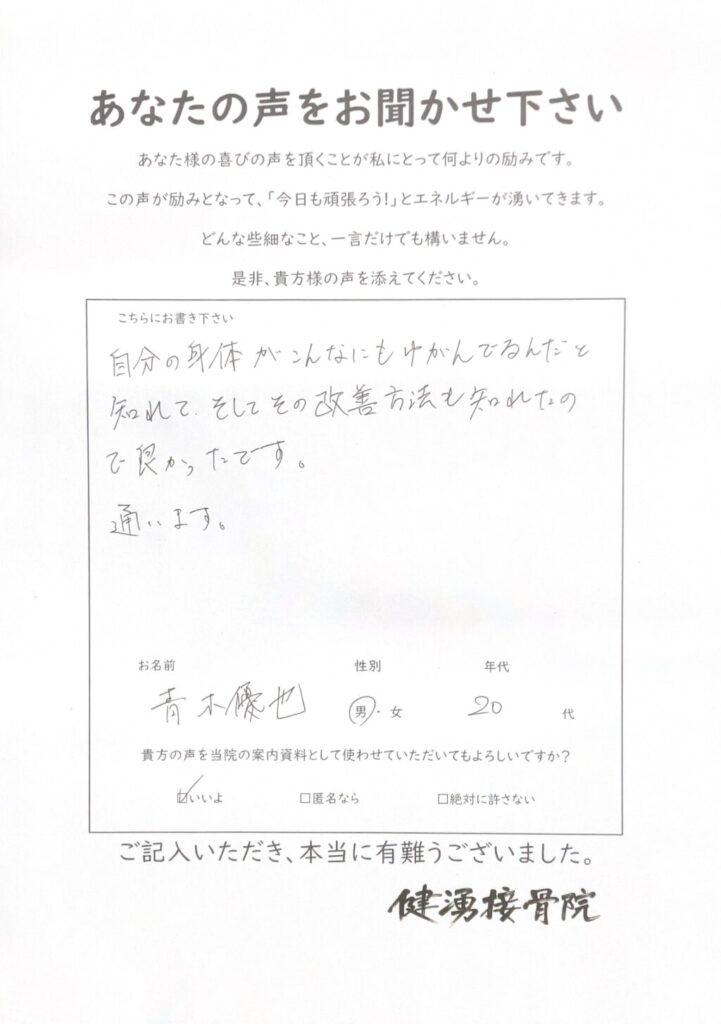 あなたの声をお聞かせ下さい
あなた様の喜びの声を頂くことが私にとって何よりの励みです。
この声が励みとなって、「今日も頑張ろう!」とエネルギーが湧いてきます。
どんな些細なこと、一言だけでも構いません。
是非、貴方様の声を添えてください。
こちらにお書き下さい
自分の身体がこんなにもゆがんでるんだと
知れて、そしてその改善方法も知れたの
で良かったです。
通います。
お名前 性別 年代
青木優也 男・女 20 代
貴方の声を当院の案内資料として使わせていただいてもよろしいですか?
☑いいよ □匿名なら □絶対に許さない
ご記入いただき、本当に有難うございました。
健湧接骨院